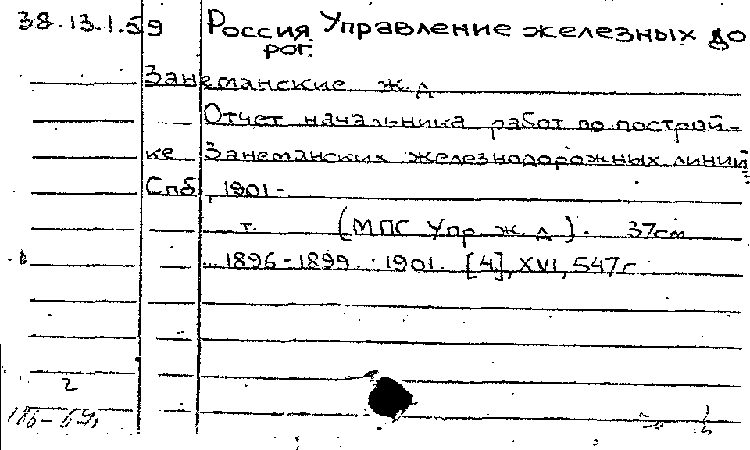 38.13.1.59 Россия. Управление железных до
рог.
Занеманские ж.д.
Отчет начальника работ по построй-
ке Занеманских железнодорожных линий
Спб, 1901-
т. (МПС Упр. ж. д.). 37см
1896-1899. 1901. [4], XVI, 547с.
2